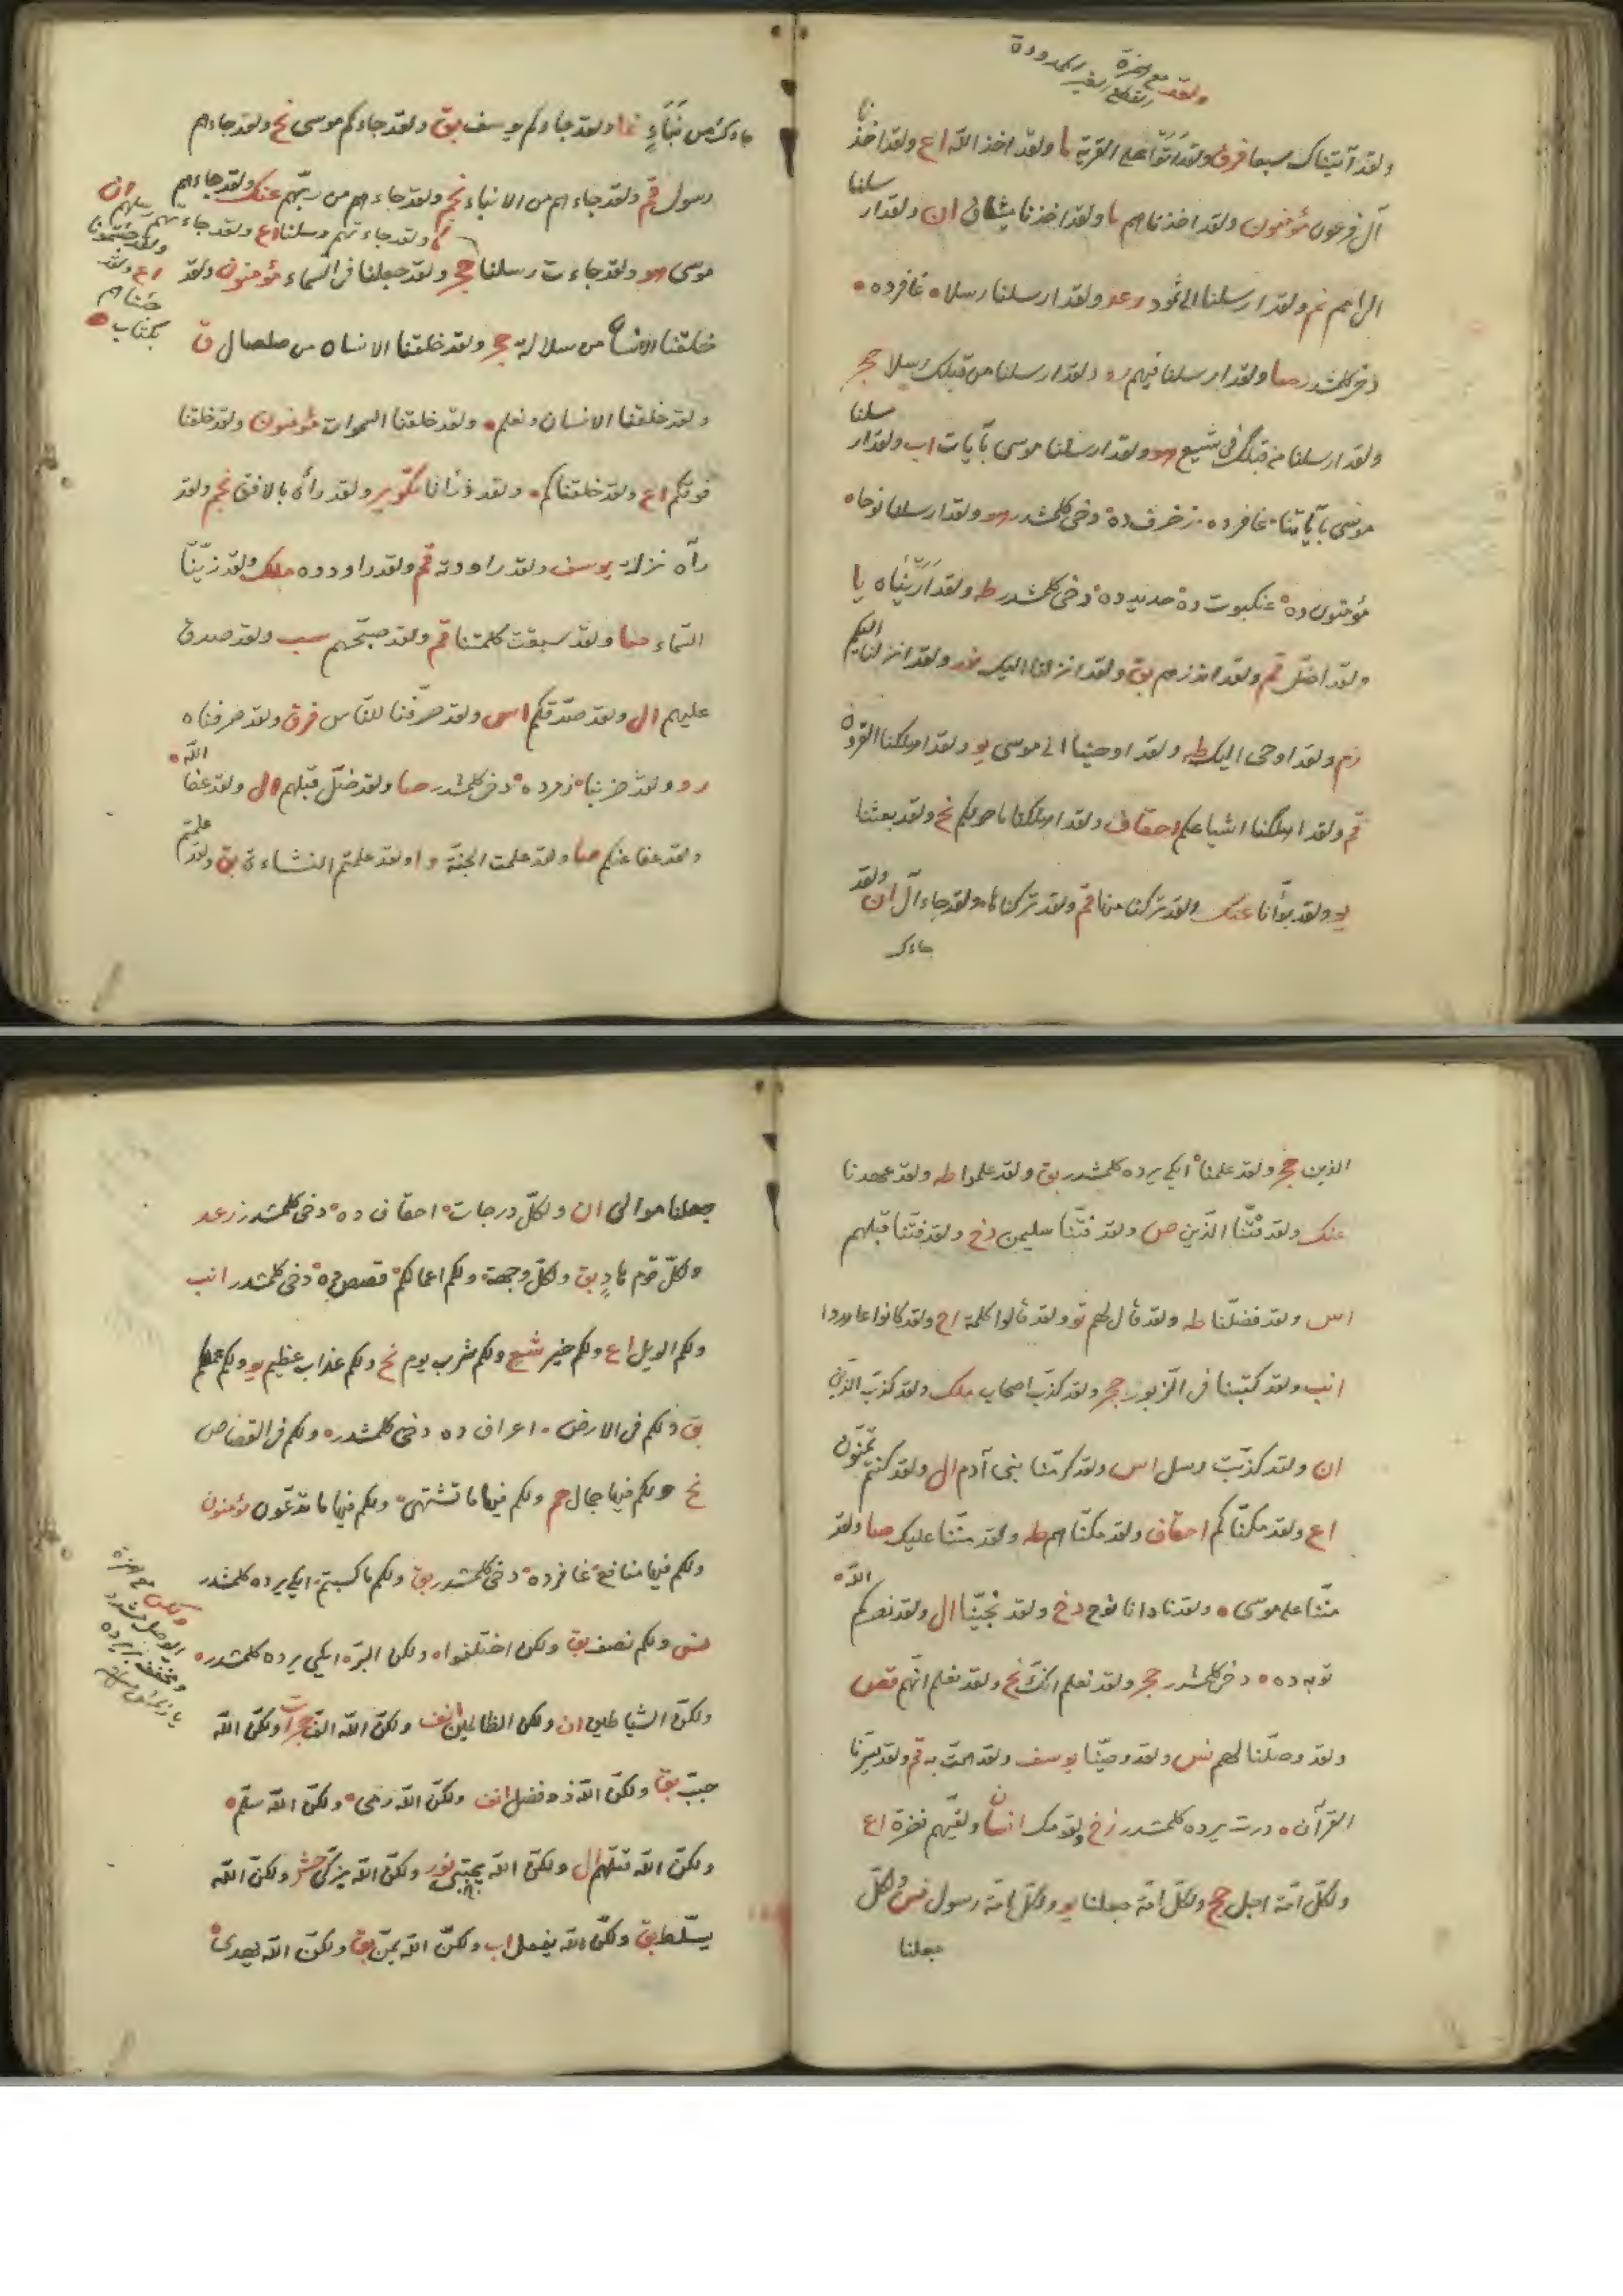 ولقد مع همزة
القطع الغير الممدودة
ولقد آتيناك سبعا فرق ولقد اتوا على القرية ما ولقد اخذ الله اع ولقد اخذنا
آل فرعون مؤمنون ولقد اخذناهم ما ولقد اخذنا ميثاق ان ولقد ارسلنا
الى امم نم ولقد ارسلنا الى ثمود رعد ولقد ارسلنا رسلا ه غافرده ه
دخى كلمشدر صا ولقد ارسلنا فيهم رو ولقد ارسلنا من قبلك رسلا حجر
ولقد ارسلنا من قبلك فى شيع هو ولقد ارسلنا موسى بآيات اب ولقد ارسلنا
موسى بآياتنا غافرده زخرف ده دخى كلمشدر هو ولقد ارسلنا نوحا ه
مؤمنون ده عنكبوت ده حديد ده دخى كلمشدر طه ولقد اريناه يا
ولقد اضل قم ولقد انذرهم بق ولقد انزلنا اليك نور ولقد انزلنا اليكم
زم ولقد اوحى اليك طه ولقد اوحينا الى موسى يو ولقد اهلكنا القرون
قم ولقد اهلكنا اشياعكم احقاف ولقد اهلكنا ما حولكم نح ولقد بعثنا
يو ولقد بوأنا عنك ولقد تركنا منها قم ولقد تركناها ولقد جاء آل ان ولقد
جاءك
جاءك من نباء غا ولقد جاءكم يوسف بق ولقد جاءكم موسى نح ولقد جاءهم
رسول قم ولقد جاءهم من الانباء نجم ولقد جاءهم من ربهم عنك ولقد جاءهم
ما ولقد جاءتهم رسلنا اع ولقد جاءتهم رسلهم ان
موسى هو ولقد جاءت رسلنا حجر ولقد جعلنا فى السماء مؤمنون ولقد
اع ولقد
جئناهم
بكتاب
خلقنا الانسان من سلالة حجر ولقد خلقنا الانسان من صلصال ق
ولقد خلقنا الانسان ونعلم ه ولقد خلقنا السموات مؤمنون ولقد خلقنا
فوقكم اع ولقد خلقناكم ه ولقد ذرأنا تكوير ولقد رآه بالافق نجم ولقد
رآه نزلة يوسف ولقد راودته قم ولقد راودوه ملك ولقد زينا
السماء صا ولقد سبقت كلمتنا قم ولقد صبحهم سب ولقد صدق
عليهم ال ولقد صدقكم اس ولقد صرفنا للناس فرق ولقد صرفناه
رو ولقد ضربنا زمرده دخى كلمشدر صا ولقد ضل قبلهم ال ولقد عفا الله
ولقد عفا عنكم صا ولقد علمت الجنة وا ولقد علمتم النشاءة بق ولقد علمتم
الذين حجر ولقد علمنا ايكى يرده كلمشدر بق ولقد علموا طه ولقد عهدنا
عنك ولقد فتنا الذين ص ولقد فتنا سليمن دخ ولقد فتنا قبلهم
اس ولقد فضلنا طه ولقد قال لهم تو ولقد قالوا كلمة اح ولقد كانوا عاهدوا
انب ولقد كتبنا فى الزبور حجر ولقد كذب اصحاب ملك ولقد كذب الذين
ان ولقد كذبت رسل اس ولقد كرمنا بنى آدم ال ولقد كنتم تمنون
اع ولقد مكناكم احقاف ولقد مكناهم طه ولقد مننا عليك صا ولقد
مننا على موسى ه ولقد نادانا نوح دخ ولقد نجينا ال ولقد نصركم الله
توبه ده ه دخى كلمشدر حجر ولقد نعلم انك نح ولقد نعلم انهم قصص
ولقد وصلنا لهم نس ولقد وصينا يوسف ولقد همت به قم ولقد يسرنا
القرآن ه درت يرده كلمشدر زخ ولقومك انسان ولقيهم نضرة اع
ولكل امة اجل حج ولكل امة جعلنا يو ولكل امة رسول نس ولكل
جعلنا
جعلنا موالى ان ولكل درجات احقاف ده دخى كلمشدر رعد
ولكل قوم هاد بق ولكل وجهة ولكم اعمالكم قصص ده دخى كلمشدر انب
ولكم الويل اع ولكم خير شع ولكم شرب يوم نح ولكم عذاب عظيم يو ولكم عملكم
بق ولكم فى الارض اعراف ده دخى كلمشدر ه ولكم فى القصاص
نح ولكم فيها جمال حم ولكم فيها ما تشتهى ولكم فيها ما تدعون مؤمنون
ولكم فيها منافع غافرده دخى كلمشدر بق ولكم ما كسبتم ايكى يرده كلمشدر
نس ولكم نصف بق ولكن اختلفوا ه ولكن البر ه ايكى يرده كلمشدر ه
ولكن مع همزة
الوصل مشدد
ومخفف
ولكن الشياطين ان ولكن الظالمين انف ولكن الله الف حجرات ولكن الله
حبب بق ولكن الله ذو فضل انف ولكن الله رمى ولكن الله سلم ه
ولكن الله قتلهم ال ولكن الله يجتبى نور ولكن الله يزكى حشر ولكن الله
يسلط بق ولكن الله يفعل اب ولكن الله يمن بق ولكن الله يهدى